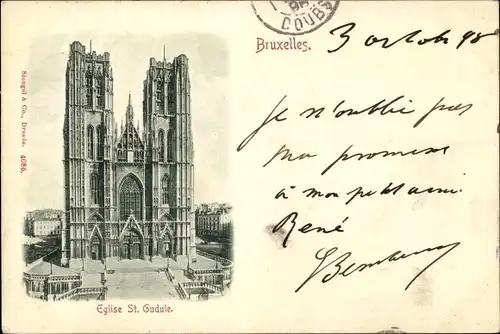 DOUBS
Bruxelles. 3 octobre 98
Je n'oublie pas
Ma promesse
à mon petit ami
René
Stengel & Co., Dresde. 4086.
Eglise St. Gudule.